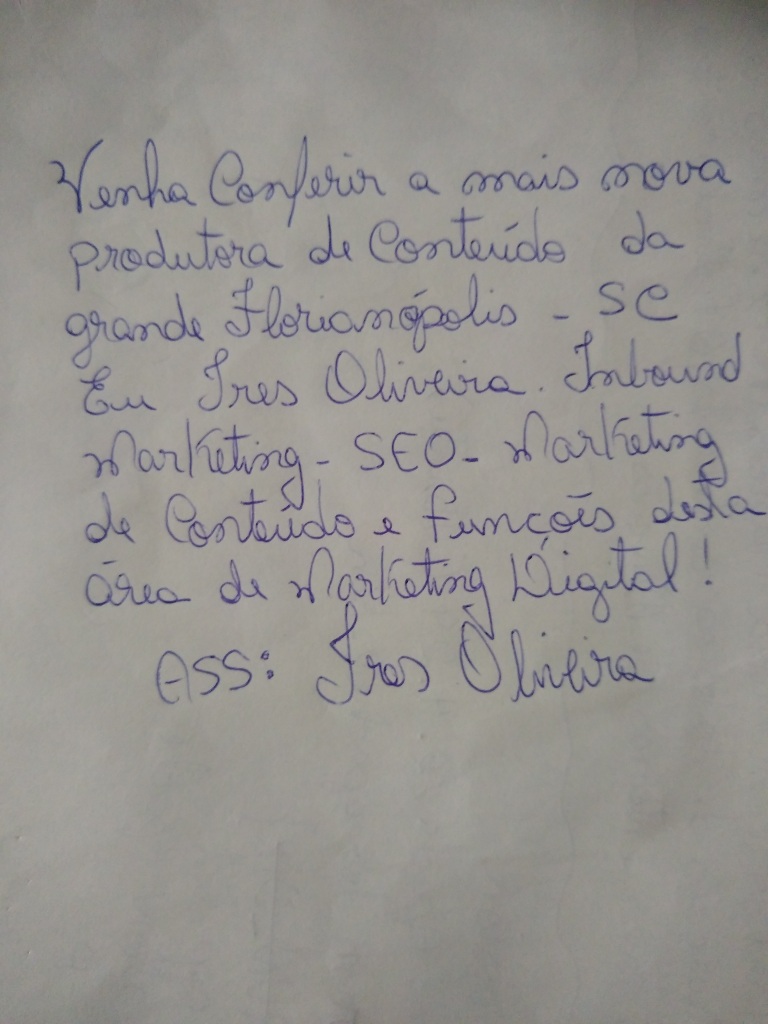 Venha Conferir a mais nova
produtora de Conteúdo da
grande Florianópolis - SC
Eu Ires Oliveira. Inbound
Marketing - SEO - Marketing
de Conteúdo e funções desta
área de Marketing Digital!
ASS: Ires Oliveira